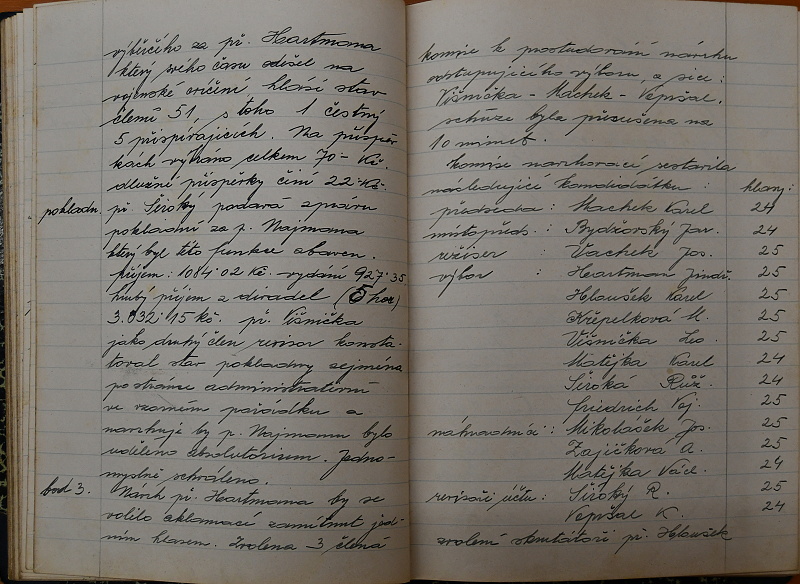 výběrčího za př. Hartmana
který svého času odešel na
vojenské cvičení, hlásí stav
členů 51, s toho 1 čestný
5 přispívajících. Na příspěv-
kách vybráno celkem 70- Kč.
dlužné příspěvky činí 22 Kč.
pokladn. př. Široký podává zprávu
pokladní za p. Najmana
který byl této funkce zbaven.
příjem: 1084·02 Kč. vydání 927·35.
hrubý příjem z divadel (5 her)
3.932·15 Kč. př. Višnička
jako druhý člen revisor konsta-
toval stav pokladny zejména
po stránce administrativní
ve vzorném pořádku a
navrhuje by p. Najmanu bylo
uděleno absolutorium. Jedno-
myslně schváleno.
bod 3. Návrh př. Hartmana by se
volilo aklamací zamítnut jed-
ním hlasem. Zvolena 3 členná
komise k prostudování návrhu
odstupujícího výboru, a sice:
Višnička - Machek - Vepřal.
schůze byla přerušena na
10 minut.
Komise navrhovací sestavila
následující kandidátku: hlasy:
předseda: Machek Karel 24
místopřed.: Bydžovský Jar. 24
režiser: Vachek Jos. 25
výbor: Hartman Jindř. 25
Hloušek Karel 25
Křepelková M. 25
Višnička Leo. 25
Matějka Karel 24
Široká Růž. 24
Friedrich Voj. 25
náhradníci: Mikolášek Jos. 25
Zajíčková A. 25
Matějka Václ. 24
revisoři účtů: Široký R. 25
Vepřal K. 24
zvoleni skrutátoři př. Hloušek